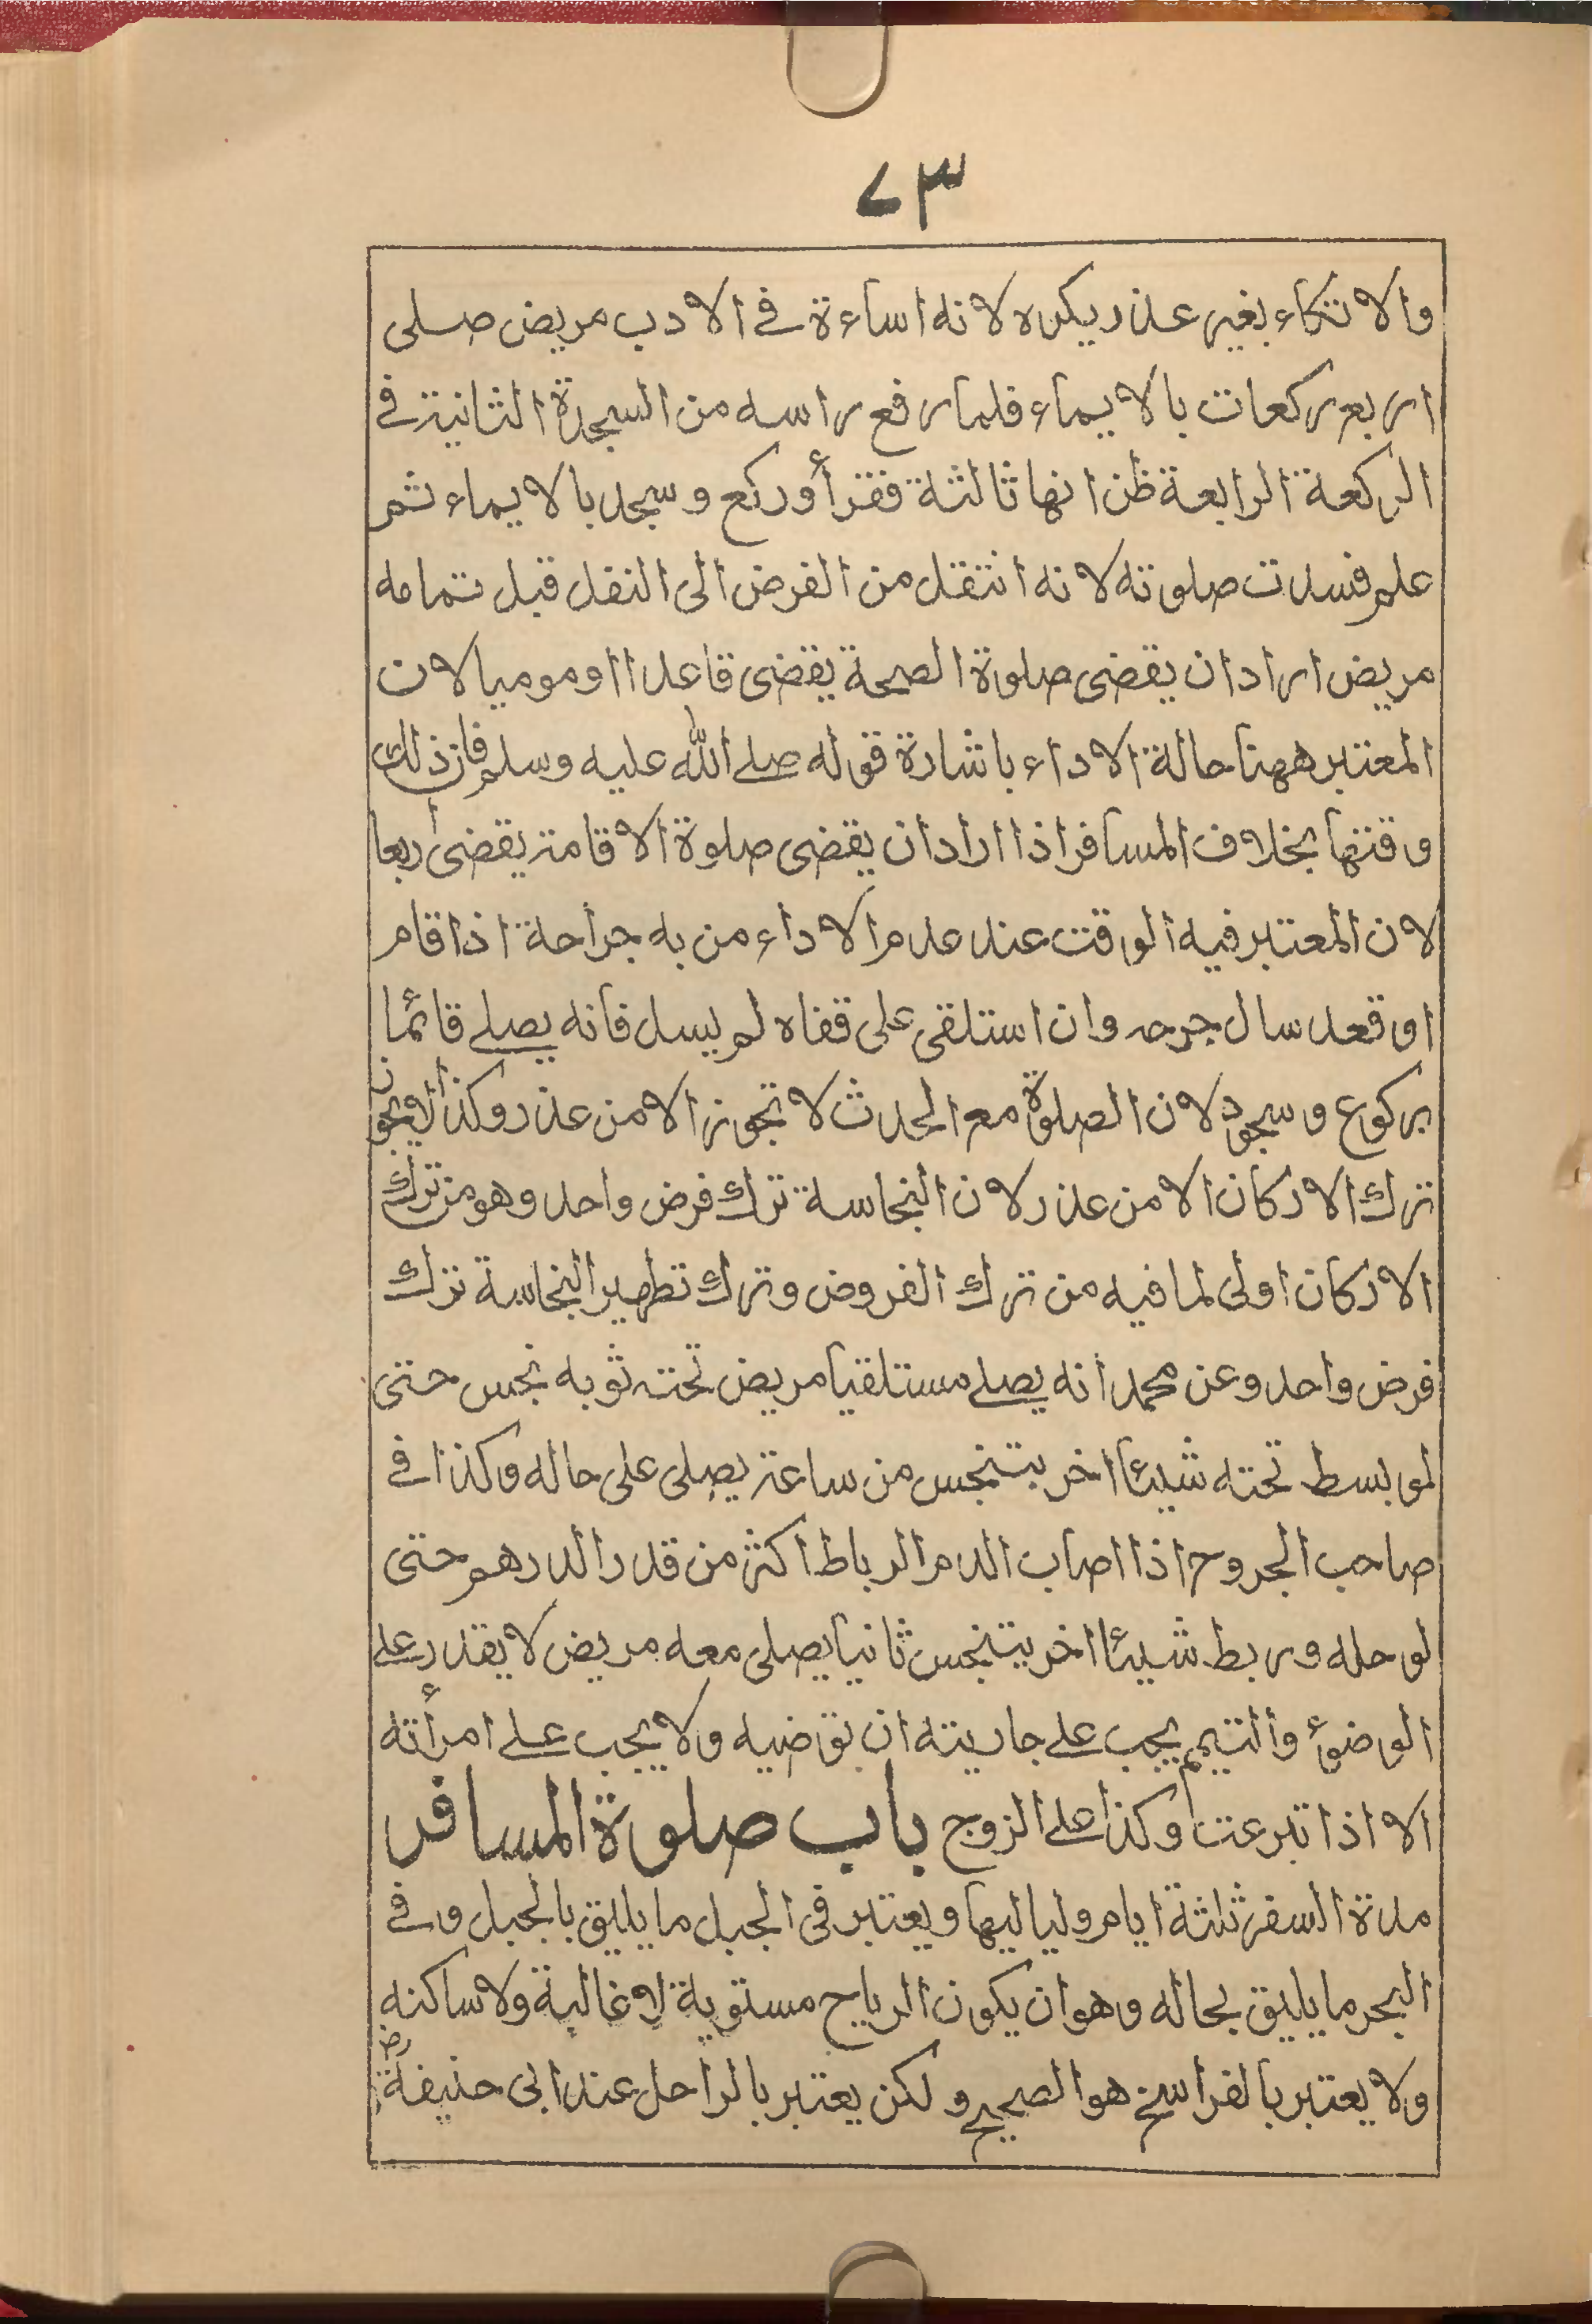 ٧٣
والاتكاء بغير عذر يكره لانه اساءة في الادب مريض صلى
اربع ركعات بالايماء فلما رفع راسه من السجدة الثانية في
الركعة الرابعة ظن انها ثالثة فقرأ وركع وسجد بالايماء ثم
علم فسدت صلوته لانه انتقل من الفرض الى النفل قبل تمامه
مريض اراد ان يقضى صلوة الصحة يقضى قاعدا او موميا لان
المعتبر ههنا حالة الاداء باشارة قوله صلى الله عليه وسلم فان ذلك
وقتها بخلاف المسافر اذا اراد ان يقضى صلوة الاقامة يقضى اربعا
لان المعتبر فيه الوقت عند عدم الاداء من به جراحة اذا قام
او قعد سال جرحه وان استلقى على قفاه لم يسل فانه يصلي قائما
بركوع وسجود لان الصلوة مع الحدث لا تجوز الا من عذر وكذا لا يجوز
ترك الاركان الا من عذر لان النجاسة ترك فرض واحد وهو من ترك
الاركان اولى لما فيه من ترك الفروض وترك تطهير النجاسة ترك
فرض واحد وعن محمد انه يصلي مستلقيا مريض تحته ثوبه نجس حتى
لو بسط تحته شيئا اخر يتنجس من ساعته يصلى على حاله وكذا في
صاحب الجروح اذا اصاب الدم الرباط اكثر من قدر الدرهم حتى
لو حله وربط شيئا اخر يتنجس ثانيا يصلى معه مريض لا يقدر على
الوضوء والتيمم يجب على جاريته ان توضيه ولا يجب على امرأته
الا اذا تبرعت وكذا على الزوج باب صلوة المسافر
مدة السفر ثلثة ايام ولياليها ويعتبر في الجبل ما يليق بالجبل وفي
البحر ما يليق بحاله وهو ان يكون الرياح مستوية لا غالبة ولا ساكنه
ولا يعتبر بالفراسخ هو الصحيح ولكن يعتبر بالراحل عند ابى حنيفة رض